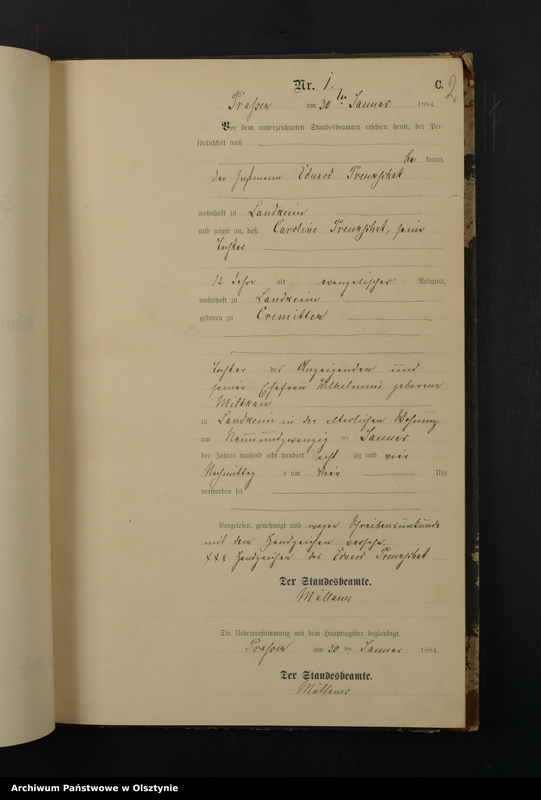 Nr. 1.
C. 2
am 30ten Januar 1884.
Vor dem unterzeichneten Standesbeamten erschien heute, der Per-
sönlichkeit nach
be kannt,
der Eduard
wohnhaft zu Landkeim
und zeigte an, daß Caroline seine
Tochter
12 Jahre alt evangelischer Religion,
wohnhaft zu Landkeim
geboren zu Cremitten
Tochter des Anzeigenden und
seiner Ehefrau geborene
zu Landkeim in der elterlichen Wohnung
am Neunundzwanzig ten Januar
des Jahres tausend acht hundert acht zig und vier
Nachmittag s um vier Uhr
verstorben sei
Vorgelesen, genehmigt und wegen Schreibensunkunde
mit dem Handzeichen versehn.
XXX Handzeichen des Eduard
Der Standesbeamte.
Die Uebereinstimmung mit dem Hauptregister beglaubigt.
am 30 ten Januar 1884.
Der Standesbeamte.
Archiwum Państwowe w Olsztynie